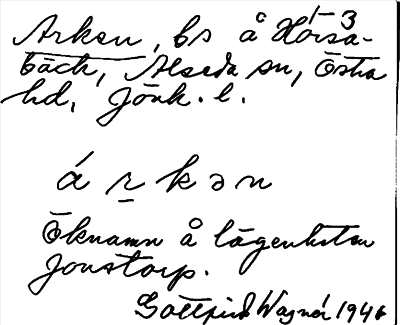 1-3
Arken, bs å Horsa-
bäck, Alseda sn, Östra
hd, Jönk. l.
á r̲ k ə n
Öknamn å lägenheten
Jonstorp.
Gottfrid Wagnér 1946